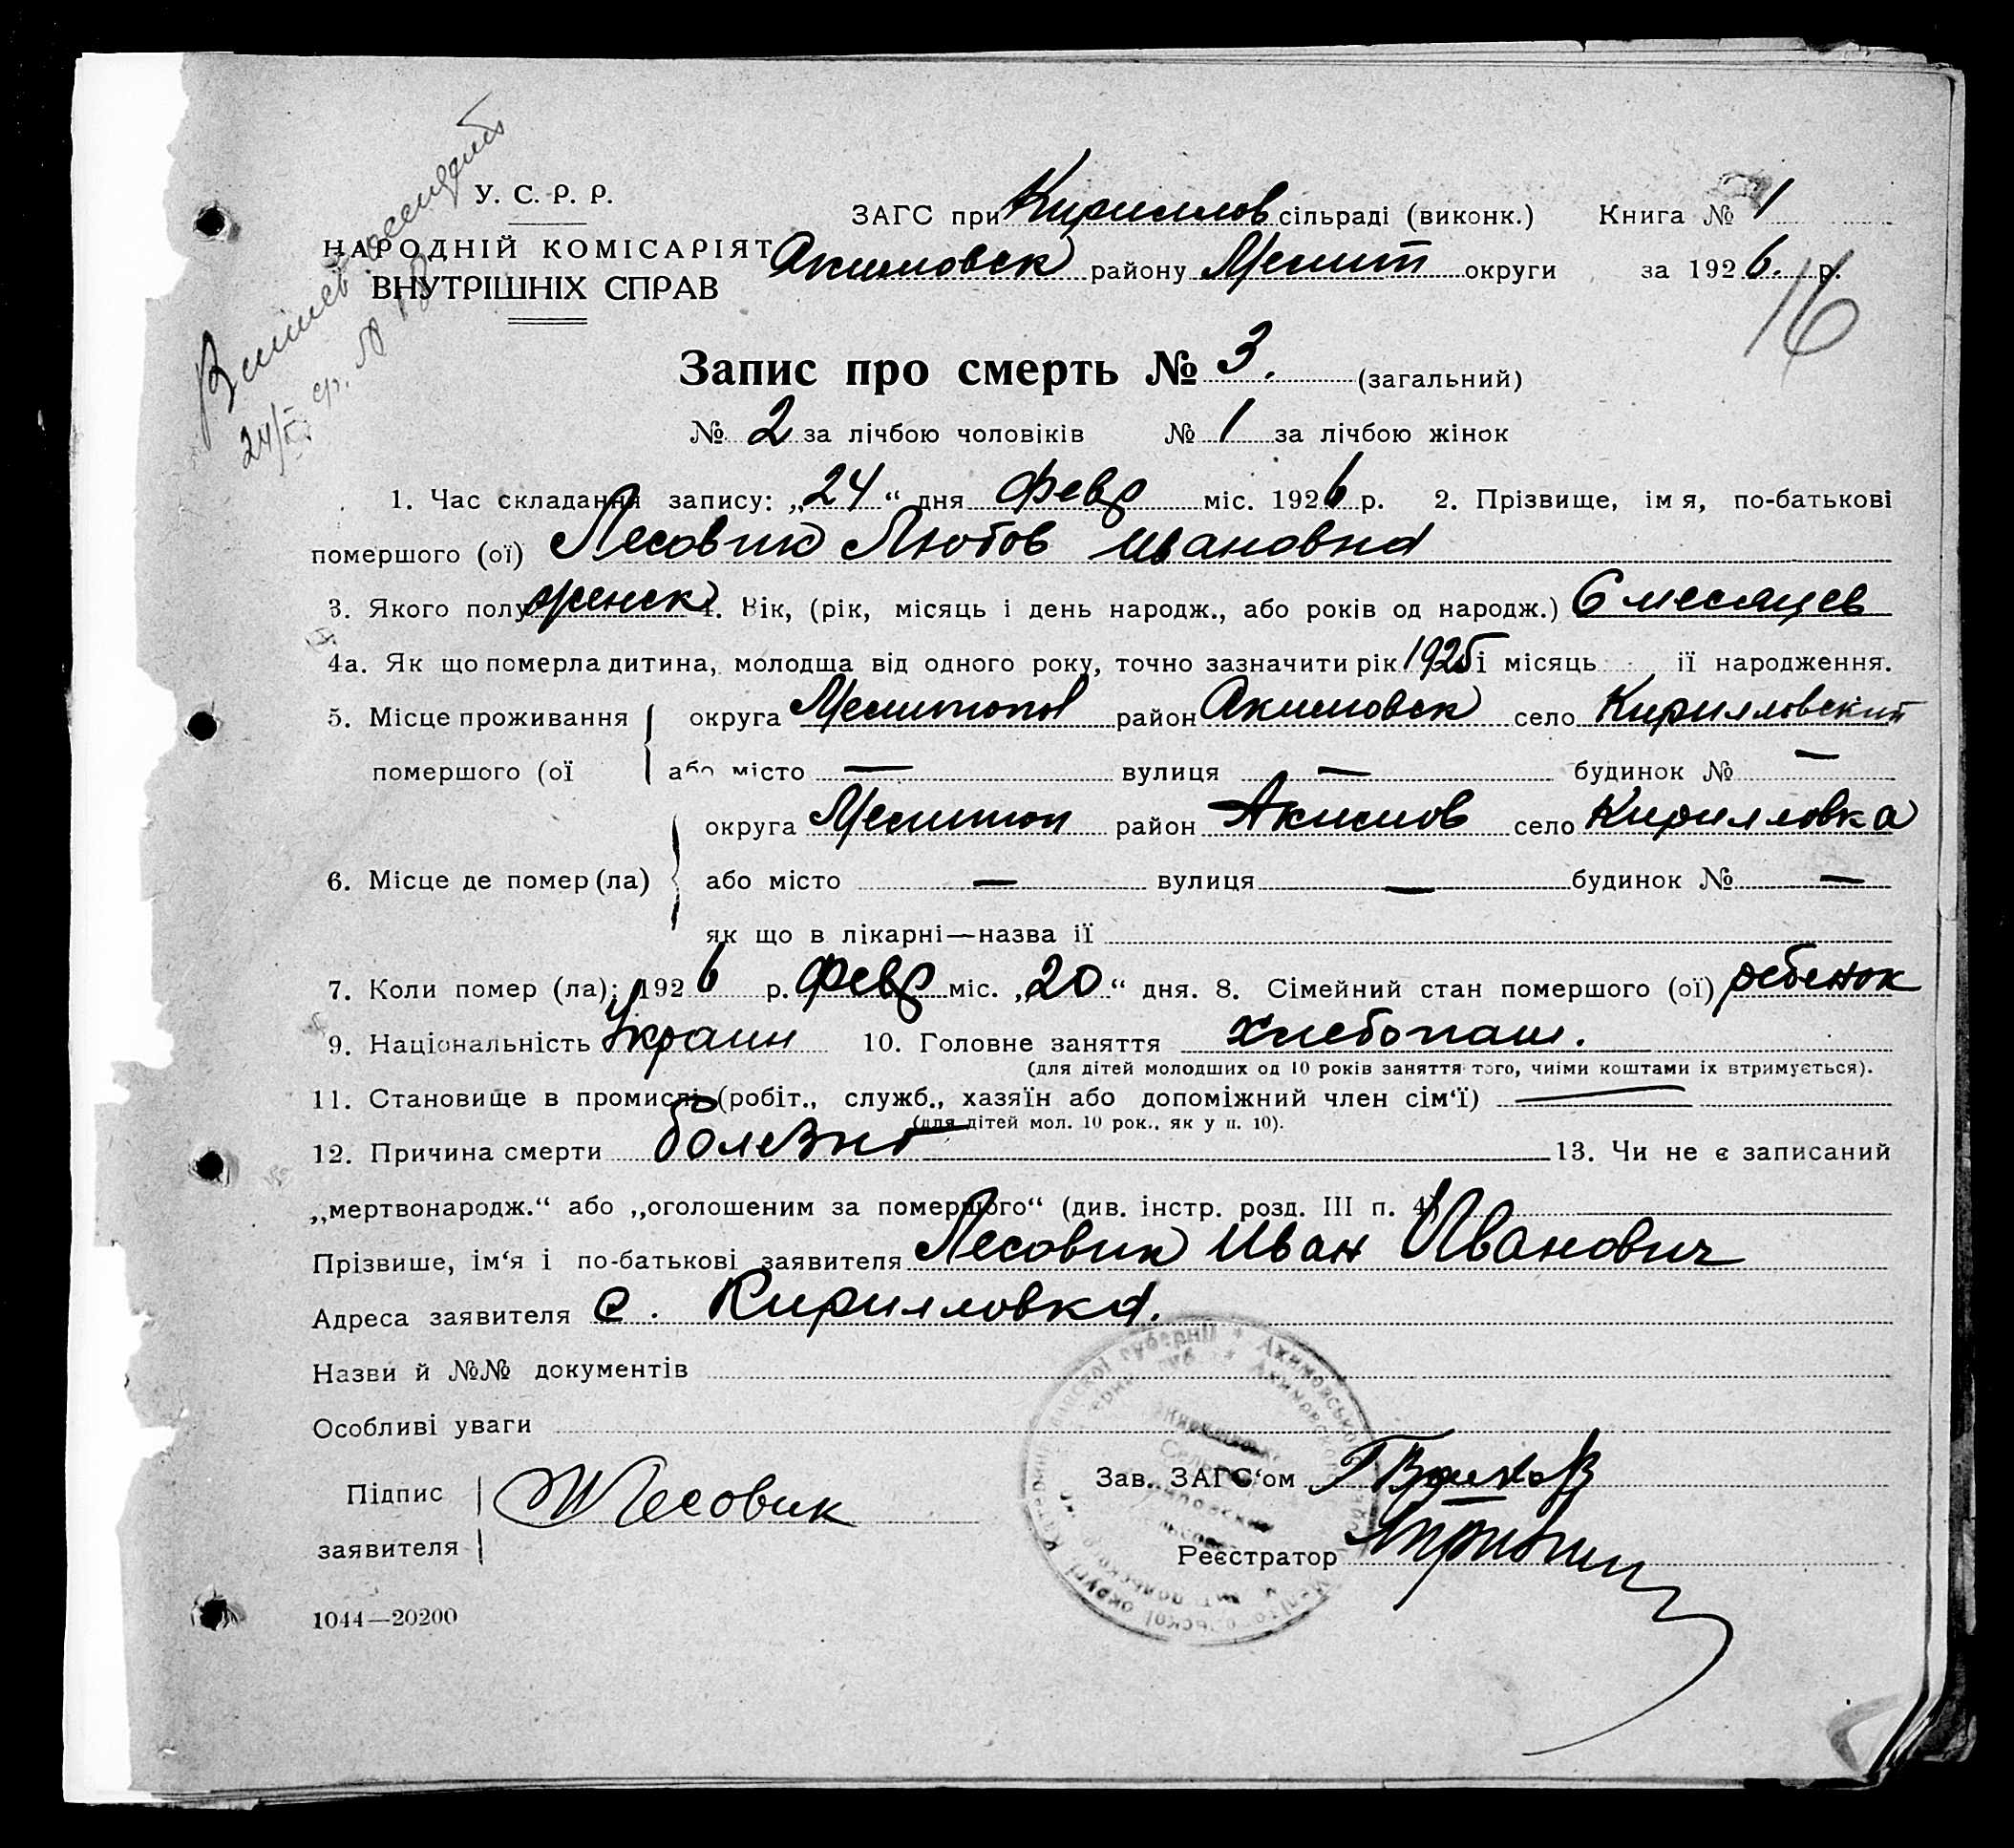 У. С. Р. Р.
НАРОДНІЙ КОМІСАРІЯТ
ВНУТРІШНІХ СПРАВ
ЗАГС при Кириллов сільраді (виконк.) Книга № 1
Акимовск району Мелит округи за 1926. р.
16
Запис про смерть № 3. (загальний)
№ 2 за лічбою чоловіків № 1 за лічбою жінок
1. Час складання запису: „24“ дня февр міс. 1926 р. 2. Прізвище, імя, по-батькові
помершого (ої) Лесовик Любов Ивановна
3. Якого полу женск 4. Вік, (рік, місяць і день народж., або років од народж.) 6 месяцев
4а. Як що померла дитина, молодша від одного року, точно зазначити рік 1925 і місяць її народження.
5. Місце проживання округа Мелитопол район Акимовск село Кирилловский
помершого (ої або місто — вулиця — будинок № —
округа Мелитоп район Акимов село Кирилловка
6. Місце де помер (ла) або місто — вулиця — будинок № —
як що в лікарні—назва її
7. Коли помер (ла): 1926 р. февр міс. „20“ дня. 8. Сімейний стан помершого (ої) ребенок
9. Національність Украин 10. Головне заняття хлебопаш.
(для дітей молодших од 10 років заняття того, чиїми коштами їх втримується).
11. Становище в промислі (робіт., служб., хазяїн або допоміжний член сім‘ї) —
(для дітей мол. 10 рок., як у п. 10).
12. Причина смерти болезнь 13. Чи не є записаний
„мертвонародж.“ або „оголошеним за помершого“ (див. інстр. розд. III п. 4)
Прізвише, ім‘я і по-батькові заявителя Лесовик Иван Иванович
Адреса заявителя с. Кирилловка.
Назви й №№ документів
Особливі уваги
Підпис заявителя Лесовик
Зав. ЗАГС‘ом
Реєстратор
1044—20200